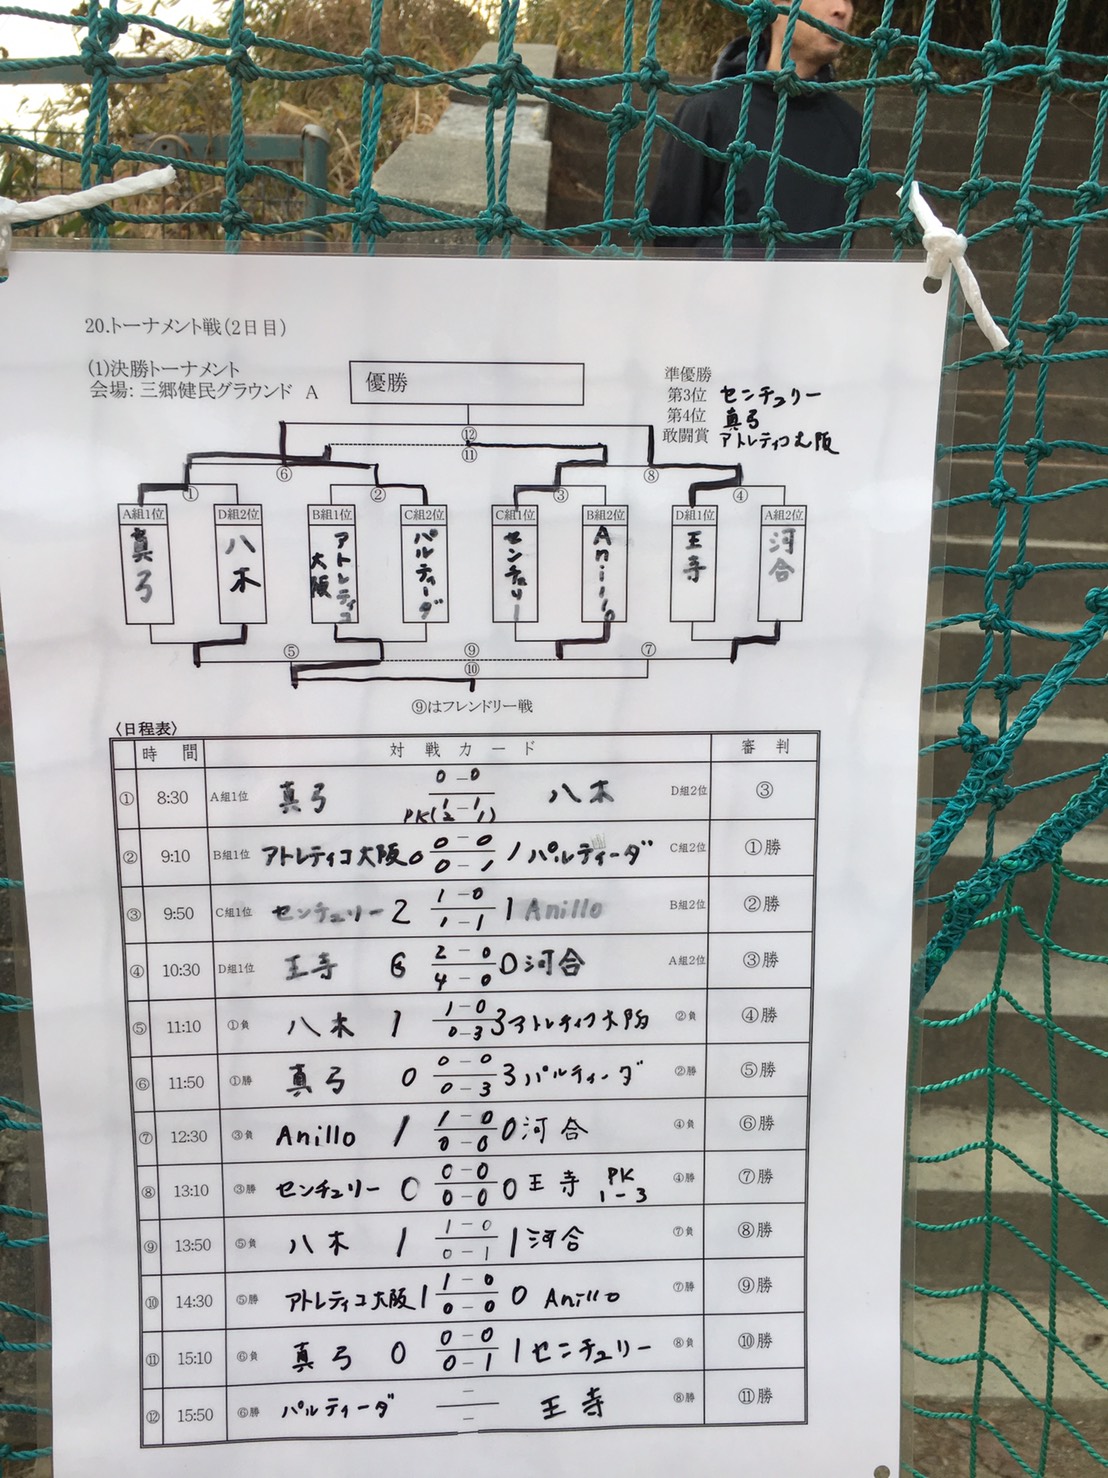 20.トーナメント戦(2日目)
(1)決勝トーナメント
会場: 三郷健民グラウンド A
優勝
準優勝
第3位 センチュリー
第4位 真弓
敢闘賞 アトレティコ大阪
⑫
⑪
⑥ ⑧
① ② ③ ④
A組1位 D組2位 B組1位 C組2位 C組1位 B組2位 D組1位 A組2位
真弓 八木 アトレティコ大阪 パルティーダ センチュリー Anillo 王寺 河合
⑤ ⑨ ⑦
⑩
⑨はフレンドリー戦
〈日程表〉
時 間 対 戦 カ ー ド 審 判
① 8:30 A組1位 真弓 0-0 八木 D組2位 ③
PK(1-1
2-1)
② 9:10 B組1位 アトレティコ大阪 0 0-0 1 パルティーダ C組2位 ①勝
0-1
③ 9:50 C組1位 センチュリー 2 1-0 1 Anillo B組2位 ②勝
1-1
④ 10:30 D組1位 王寺 6 2-0 0 河合 A組2位 ③勝
4-0
⑤ 11:10 ①負 八木 1 1-0 3 アトレティコ大阪 ②負 ④勝
0-3
⑥ 11:50 ①勝 真弓 0 0-0 3 パルティーダ ②勝 ⑤勝
0-3
⑦ 12:30 ③負 Anillo 1 1-0 0 河合 ④負 ⑥勝
0-0
⑧ 13:10 ③勝 センチュリー 0 0-0 0 王寺 PK ④勝 ⑦勝
0-0 1-3
⑨ 13:50 ⑤負 八木 1 1-0 1 河合 ⑦負 ⑧勝
0-1
⑩ 14:30 ⑤勝 アトレティコ大阪 1 1-0 0 Anillo ⑦勝 ⑨勝
0-0
⑪ 15:10 ⑥負 真弓 0 0-0 1 センチュリー ⑧負 ⑩勝
0-1
⑫ 15:50 ⑥勝 パルティーダ - 王寺 ⑧勝 ⑪勝
-